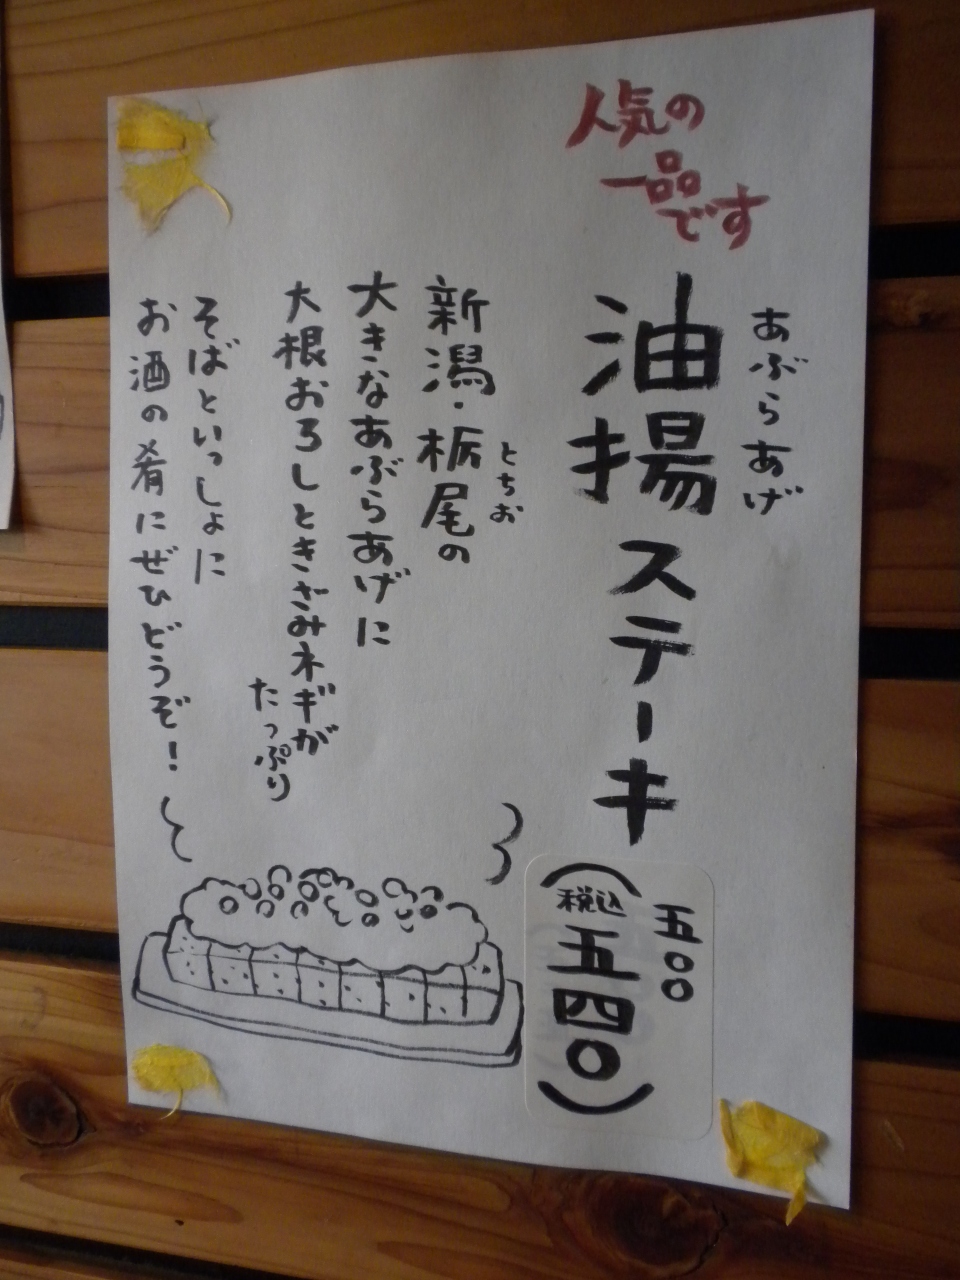 人気の
一品
です
あぶらあげ
油揚ステーキ
五〇〇
(税込五四〇)
新潟・栃尾の
とちお
大きなあぶらあげに
大根おろしときざみネギが
たっぷり
そばといっしょに
お酒の肴にぜひどうぞ!